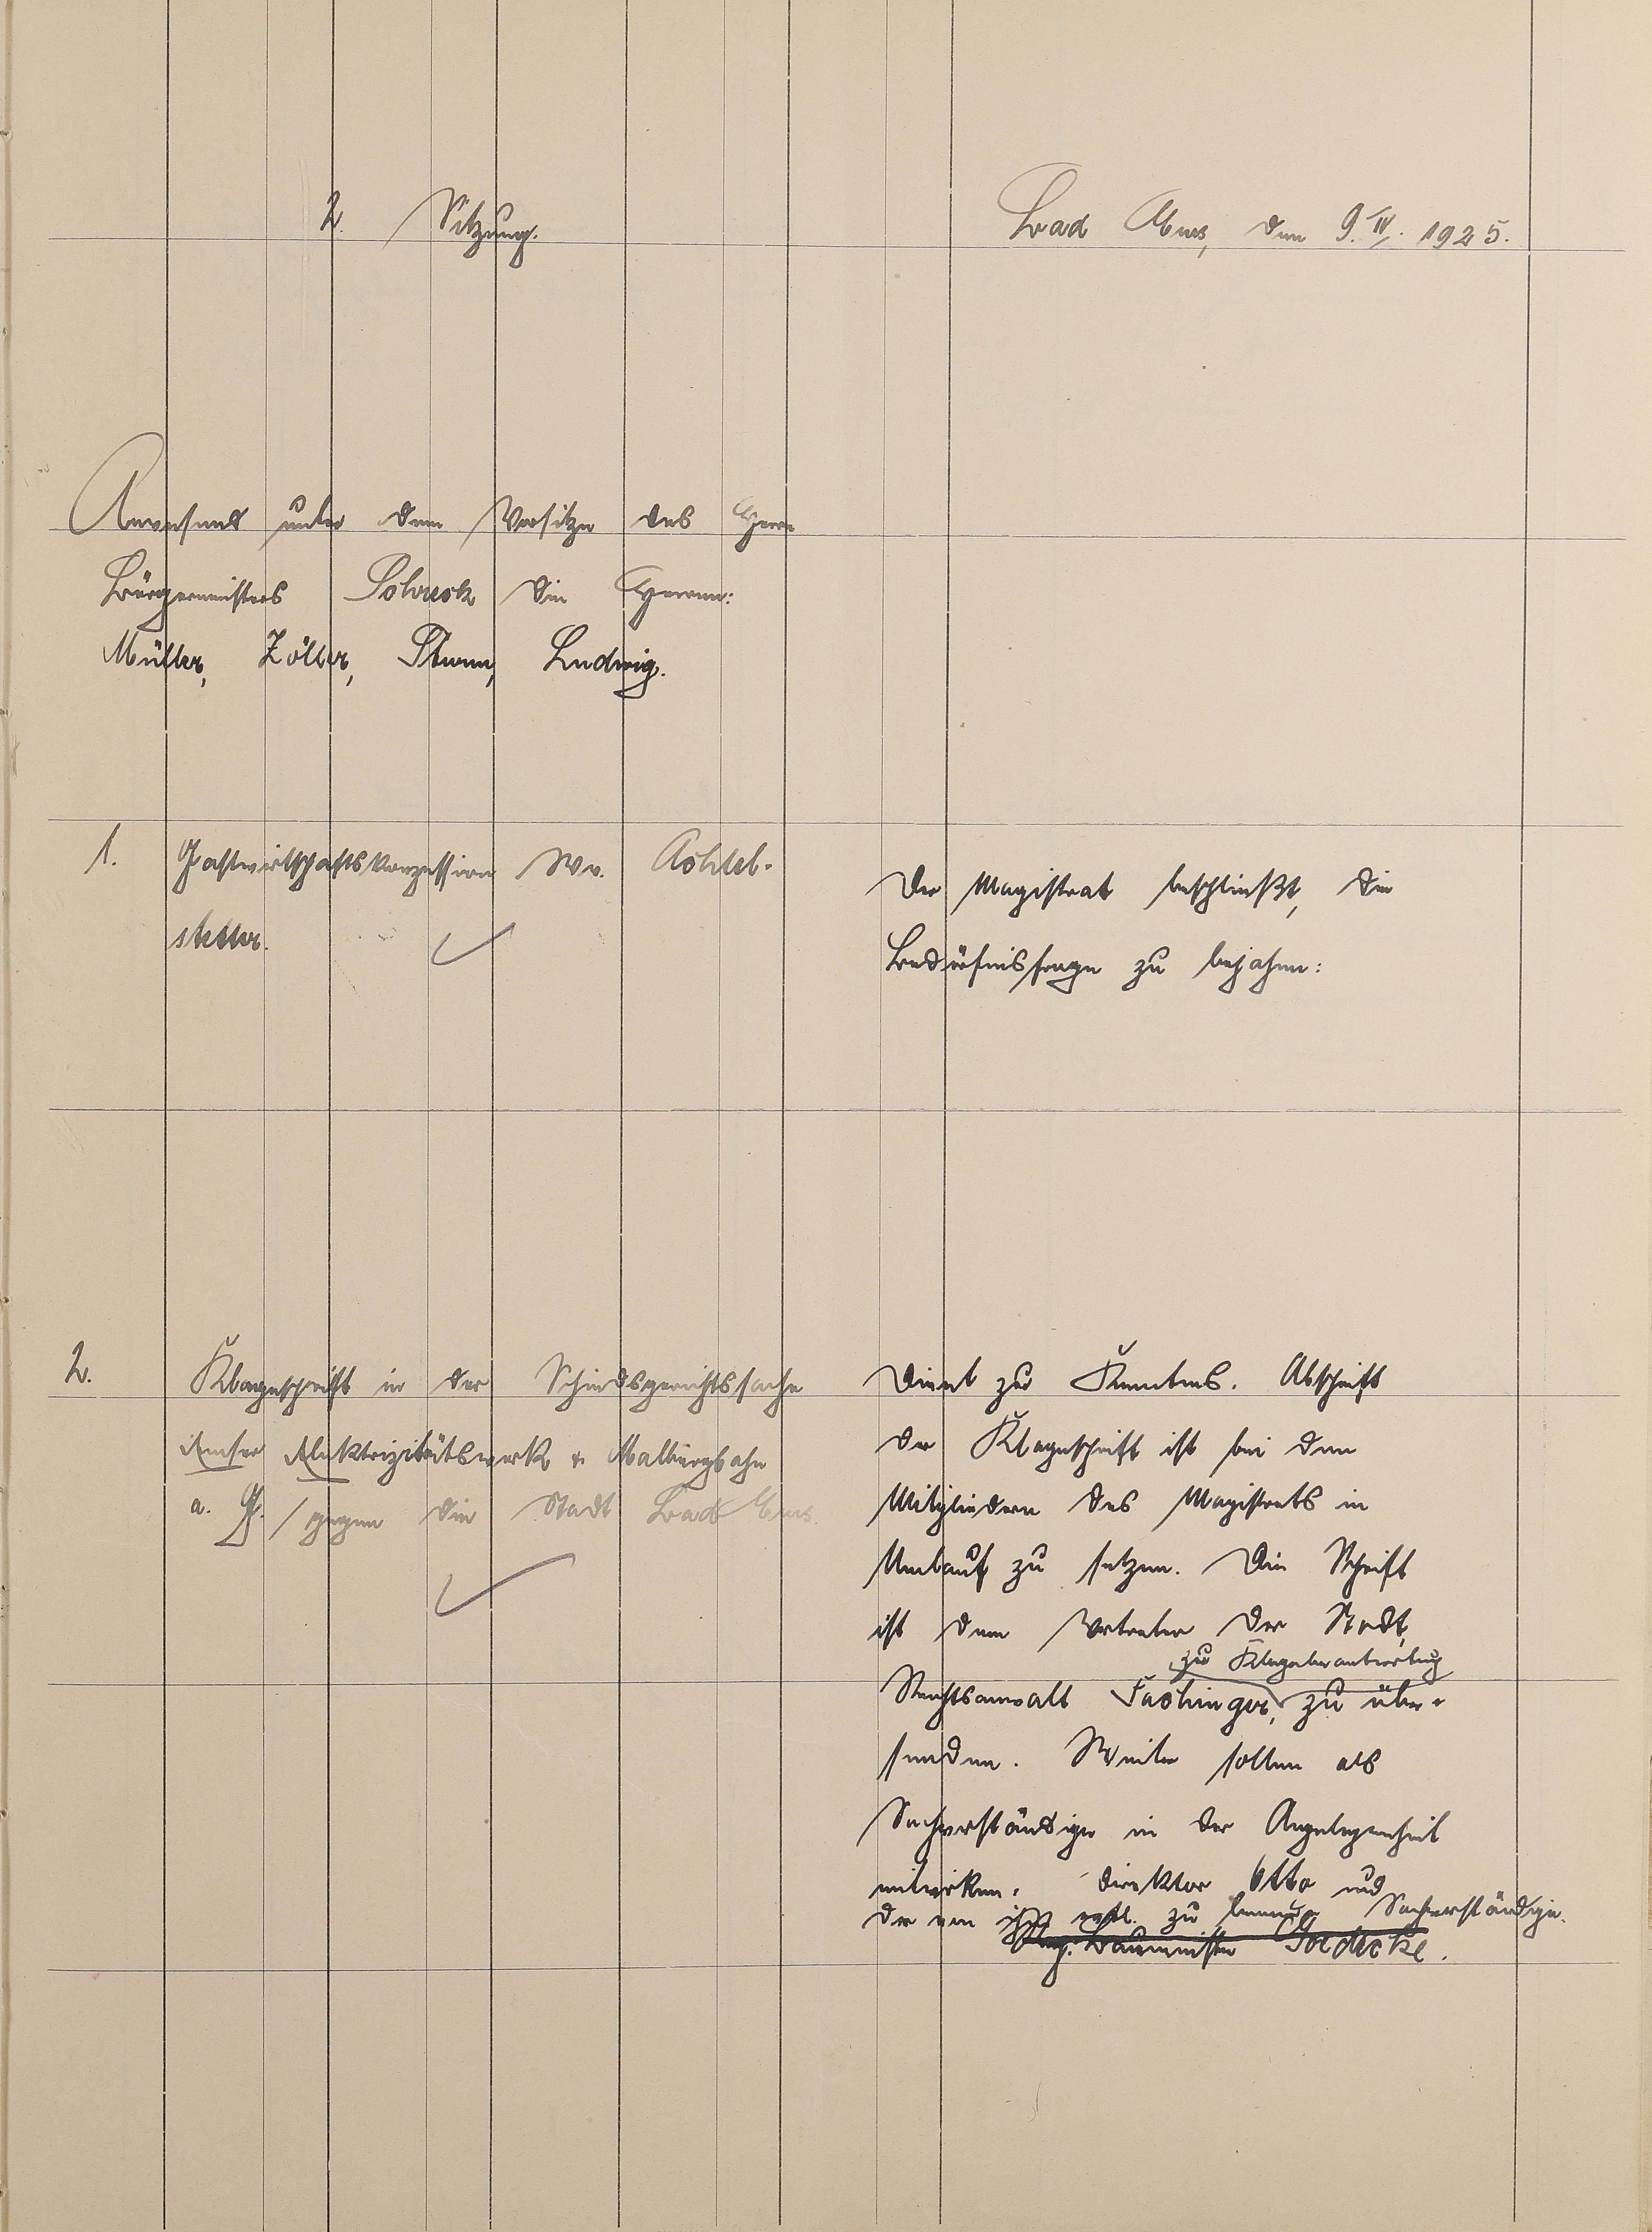 2. Sitzung.
Bad Ems, den 9. IV. 1925.
Anwesend unter dem Vorsitze des Herrn
Bürgermeisters Schreck die Herren:
Müller, Zöller, Thurn, Ludwig.
1. Gastwirtschaftskonzession Ww. Achtel-
stetter.
Der Magistrat beschließt, die
Bedürfnisfrage zu bejahen:
2. Klageschrift in der Schiedsgerichtssache
Emser Elektrizitätswerk & Malbergbahn
a. G. / gegen die Stadt Bad Ems.
Dient zur Kenntnis. Abschrift
der Klageschrift ist bei den
Mitgliedern des Magistrats in
Umlauf zu setzen. Die Schrift
ist dem Vertreter der Stadt,
zur Klagebeantwortung
Rechtsanwalt Fachinger, zu über-
senden. Weiter sollen als
Sachverständige in der Angelegenheit
mitwirken: Direktor Otto und
der von ihm evtl. zu benennende Sachverständige.
Baumeister Goedecke.